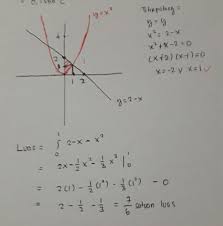 y = x²
y = 2-x
y = y
x² = 2-x
x² + x - 2 = 0
(x+2)(x-1) = 0
x = -2 ∨ x = 1
Luas = ∫₀¹ 2-x - x²
= 2x - ½x² - ⅓x³ |₀¹
= 2(1) - ½(1²) - ⅓(1³) - 0
= 2 - ½ - ⅓ = 7/6 satuan luas